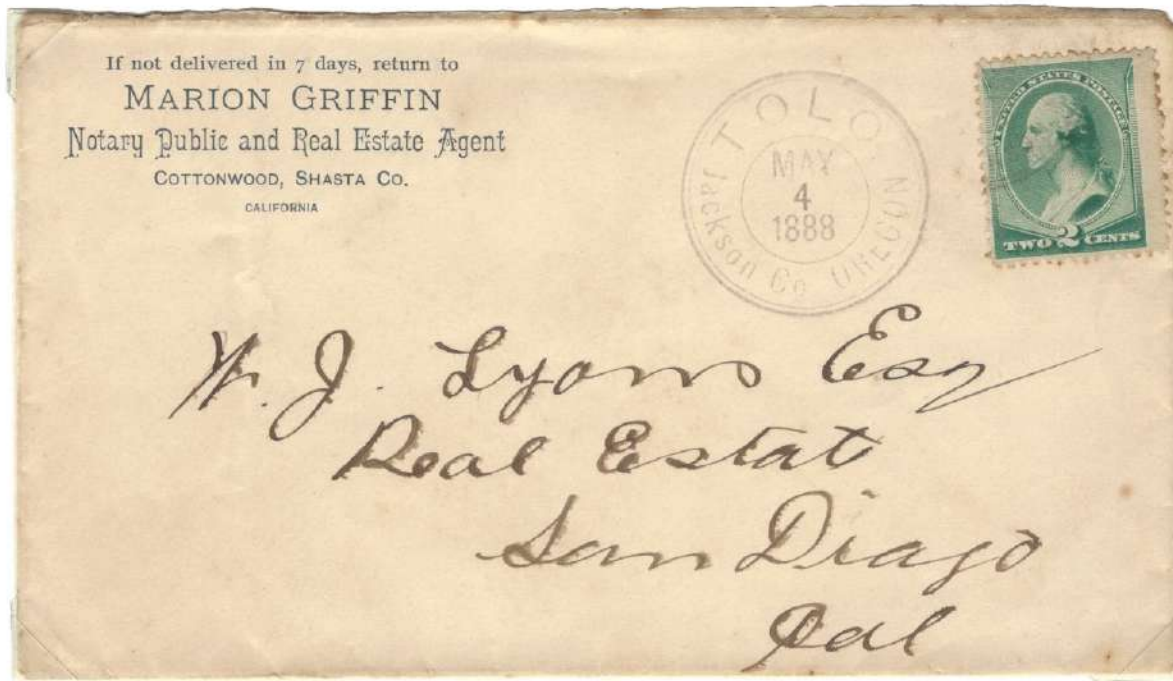 If not delivered in 7 days, return to
MARION GRIFFIN
Notary Public and Real Estate Agent
COTTONWOOD, SHASTA CO.
CALIFORNIA
TOLO
MAY
4
1888
Jackson Co OREGON
UNITED STATES POSTAGE
TWO 2 CENTS
W. J. Lyons Esq
Real Estat
San Diago
Cal